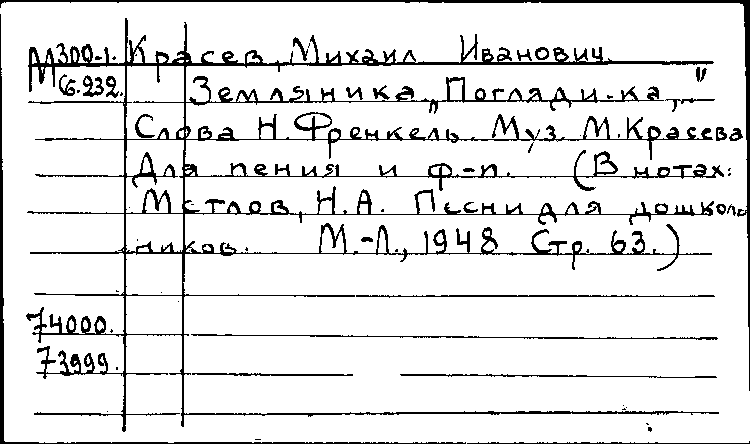 М 300-1. Красев, Михаил Иванович.
Сб.232. Земляника „Погляди-ка,..."
Слова Н. Френкель. Муз. М. Красева
Для пения и ф.-п. (В нотах:
Метлов, Н.А. Песни для дошколь
ников. М.-Л., 1948 Стр. 63.)
74000.
73999.